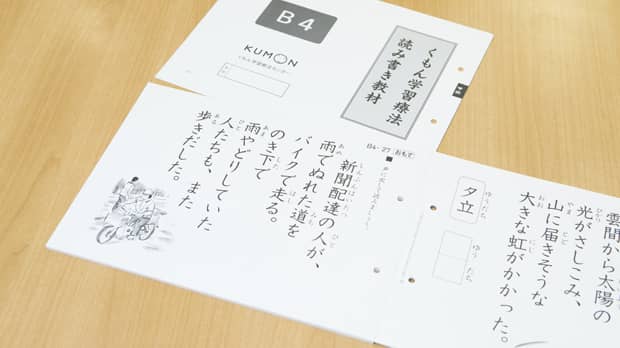 B4
KUMON
くもん学習療法センター
くもん学習療法
読み書き教材
B4-27 おもて
新聞配達の人が、
雨でぬれた道を
バイクで走る。
のき下で
雨やどりしていた
人たちも、また
歩きだした。
雲間から太陽の
光がさしこみ、
山に届きそうな
大きな虹がかかった。
ゆうだち
夕立
ゆう だち